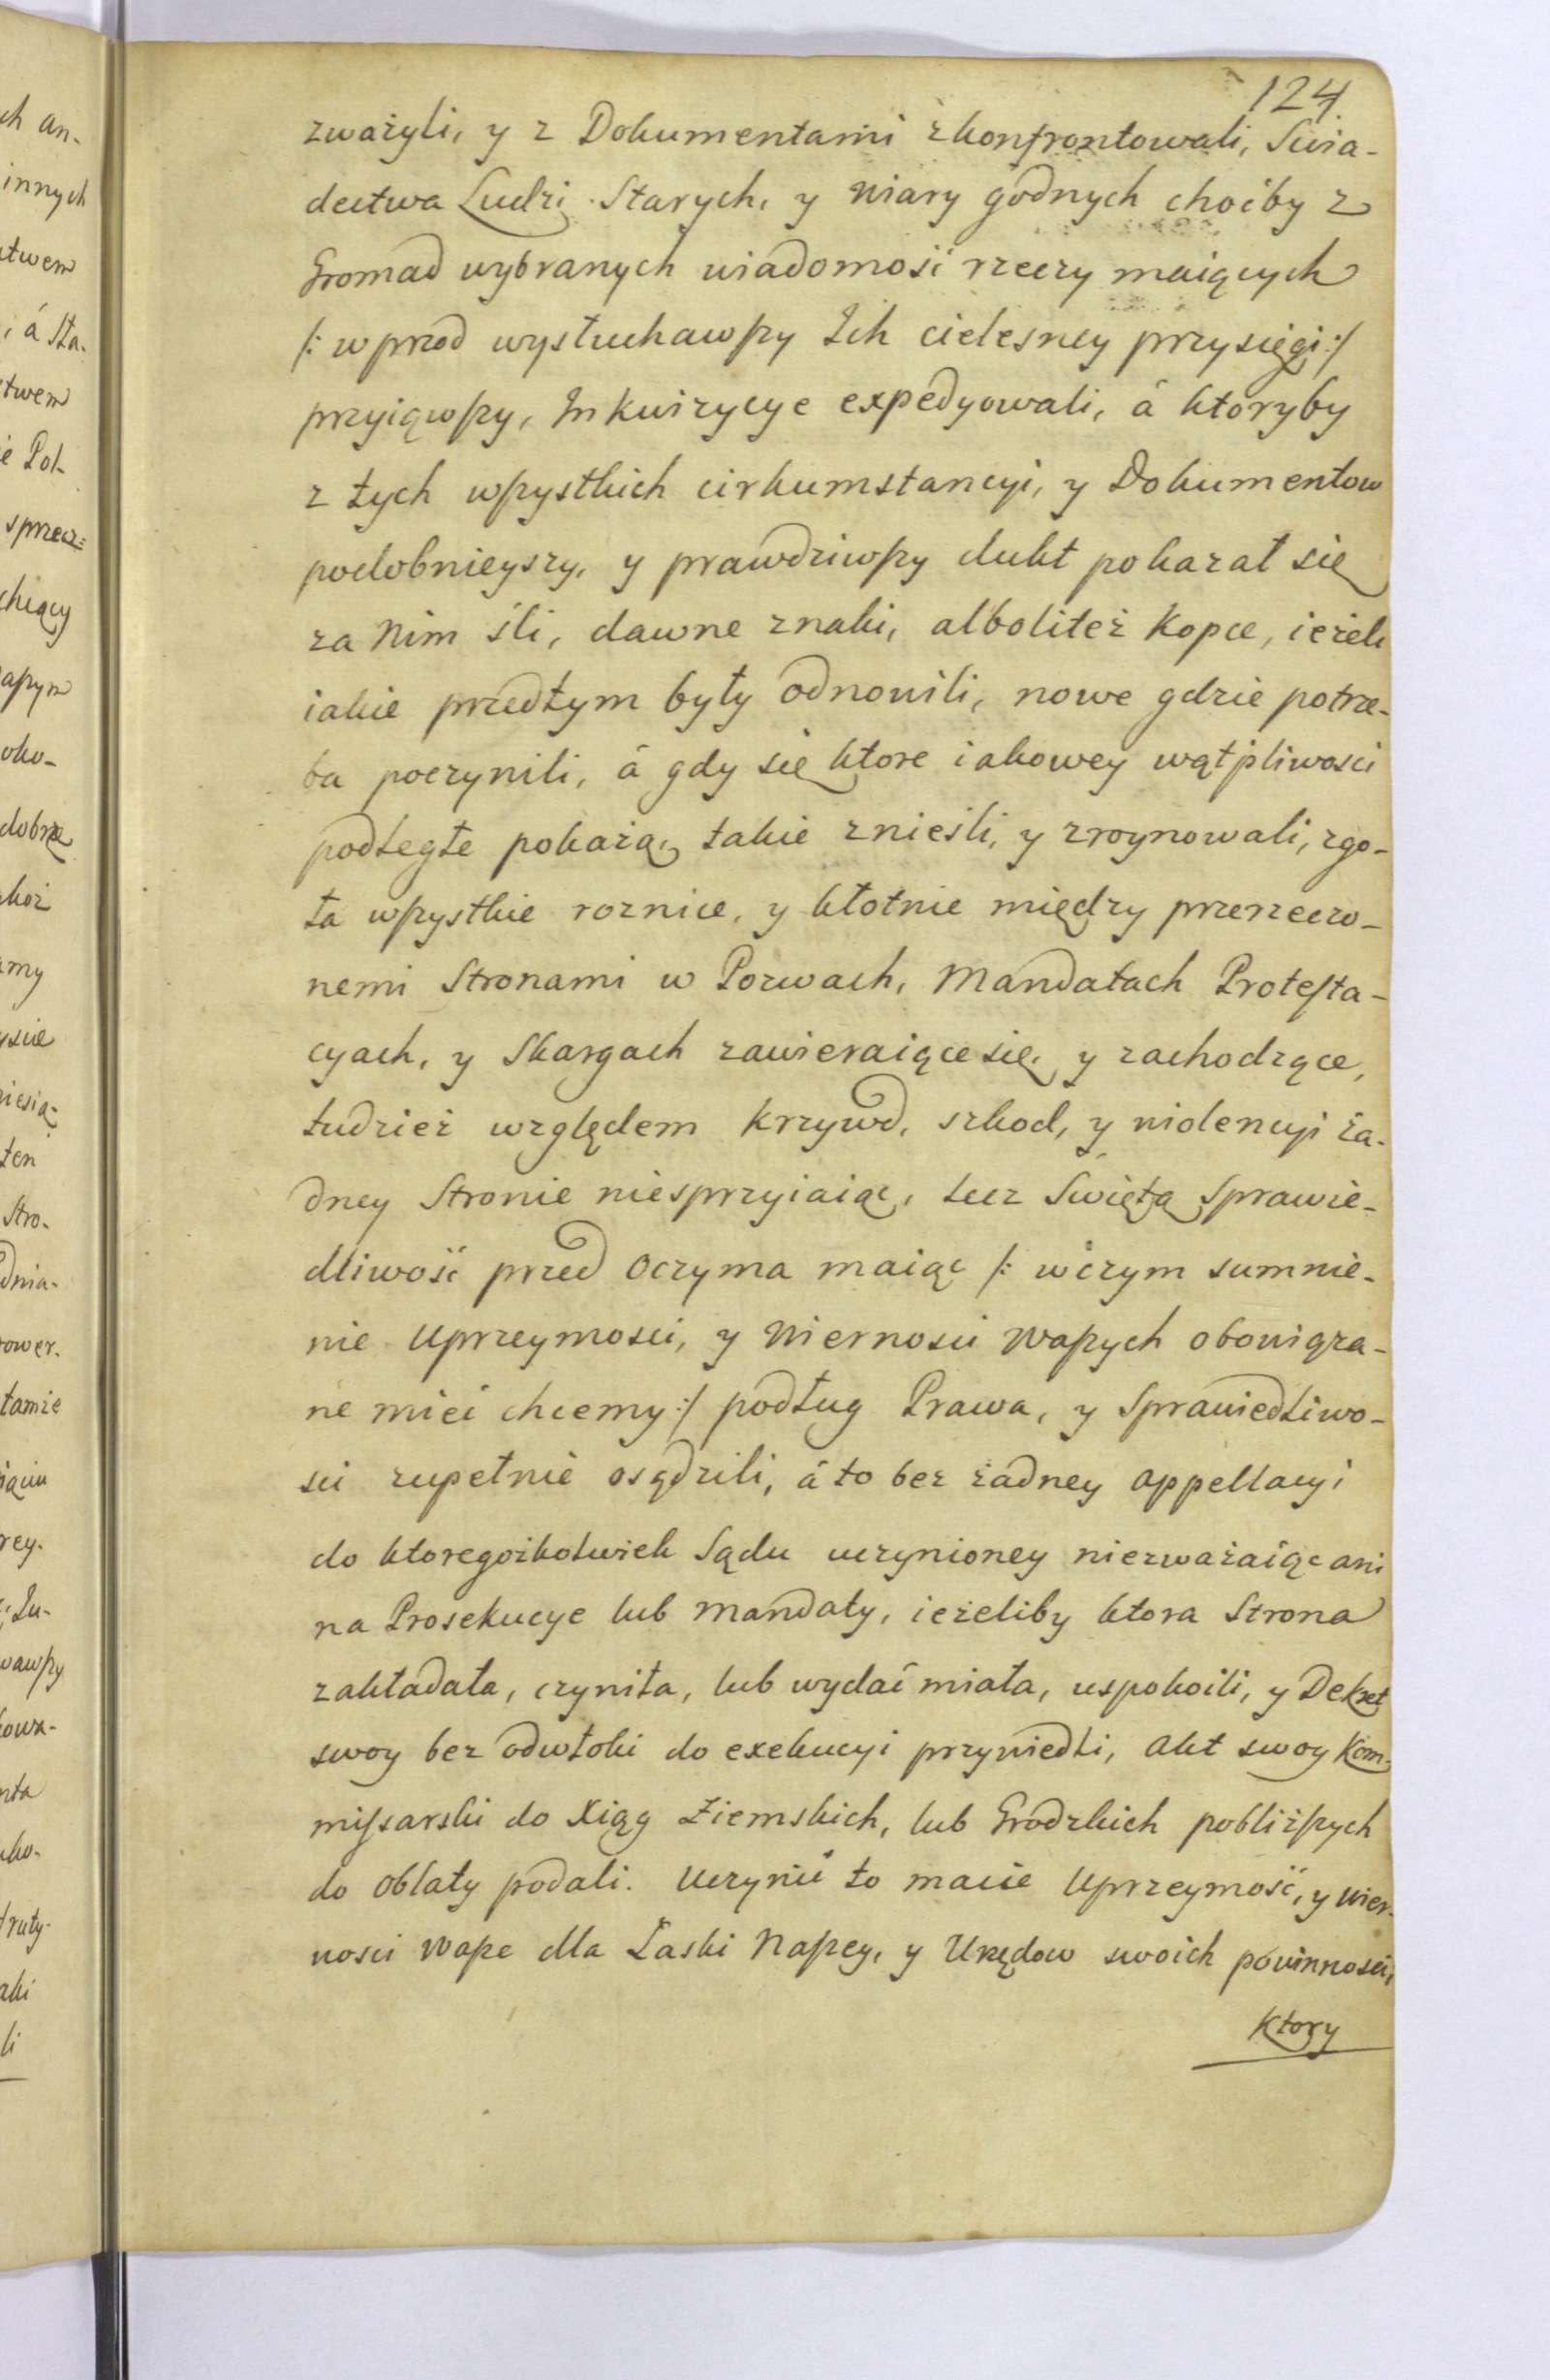 124
zważyli, y z Dokumentami zkonfrontowali, Swia-
dectwa Ludzi Starych, y wiary godnych choćby z
Gromad wybranych wiadomość rzeczy maiących
/: wprzod wysłuchawszy Ich cielesney przysięgi :/
przyiąwszy, Inkwizycye expedyowali, á ktoryby
z tych wszystkich cirkumstancyi, y Dokumentow
podobnieyszy, y prawdziwszy dukt pokazał się
za Nim śli, dawne znaki, albolitéż Kopce, ieżeli
iakie przedtym były odnowili, nowe gdzie potrze-
ba poczynili, á gdy się ktore iakowey wątpliwosci
podległe pokażą, takie znieśli, y zroynowali, zgo-
ła wszystkie roznice, y kłotnie między przerzeczo-
nemi Stronami w Pozwach, Mandatach Protesta-
cyach, y Skargach zawieraiące się, y zachodzące,
tudzież względem Krzywd, szkod, y violencyi ża-
dney Stronie niesprzyiaiąc, lecz Swiętą Sprawie-
dliwość przed Oczyma maiąc /: wczym sumnie-
nie Uprzeymosci, y Wiernosci Waszych obowiąza-
ne mieć chcemy :/ podług Prawa, y Sprawiedliwo-
sci zupełnie osądzili, á to bez żadney appellacyi
do ktoregożkolwiek Sądu uczynioney niezważaiąc ani
na Prosekucye lub Mandaty, ieżeliby ktora Strona
zakładała, czyniła, lub wydać miała, uspokoili, y Dekret
swoy bez odwłoki do exekucyi przywiedli, Akt swoy Kom-
missarski do Xiąg Ziemskich, lub Grodzkich pobliższych
do Oblaty podali. Uczynić to macie Uprzeymość, y Wier-
nosci Wasze dla Łaski Naszey, y Urzędow swoich powinnosci,
Ktory